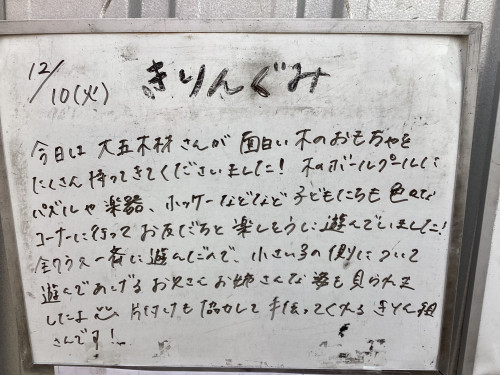 12/10(火)
きりんぐみ
今日は 大五木材さんが 面白い木のおもちゃを
たくさん持ってきてくださいました！ 木のボールプールに
パズルや楽器、ホッケーなどなど 子どもたちも色々な
コーナーに行って お友だちと楽しそうに遊んでいました！
全クラス一斉に遊んだので、小さい子の側について
遊んであげる お兄さんお姉さんな姿も見られま
したよ 片付けも協力して手伝ってくれる きりん組
さんです！